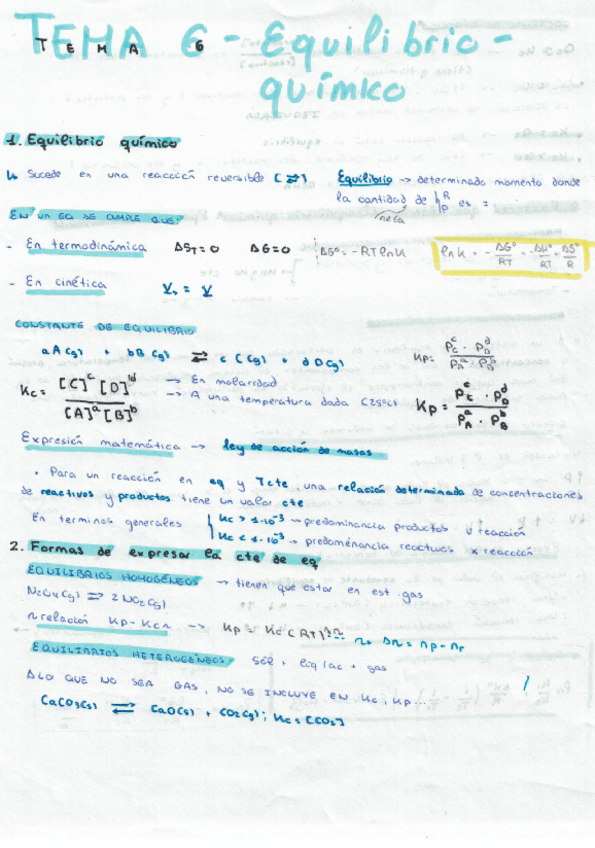 TEMA 6 - Equilibrio -
TEMA 6
químico
1. Equilibrio químico
↳ Sucede en una reacción reversible (⇄)
Equilibrio → determinado momento donde
la cantidad de { R P es =
neta
EN UN EQ SE CUMPLE QUE:
- En termodinámica ΔST = 0 ΔG = 0 ΔGº = -RT lnK lnK = - ΔGº/RT = - ΔHº/RT + ΔSº/R
- En cinética V₁ = V
CONSTANTE DE EQUILIBRIO
aA(g) + bB(g) ⇄ cC(g) + dD(g)
Kp = Pᶜ_C · Pᵈ_D / Pᵃ_A · Pᵇ_B
Kc = [C]ᶜ [D]ᵈ / [A]ᵃ [B]ᵇ
→ En molaridad
→ A una temperatura dada (25ºC)
Kp = Pᶜ_C · Pᵈ_D / Pᵃ_A · Pᵇ_B
Expresión matemática → ley de acción de masas
• Para un reacción en eq y Tcte, una relación determinada de concentraciones
de reactivos y productos tiene un valor cte
En terminos generales { Kc > 1·10⁻³ → predominancia productos v reacción
Kc < 1·10⁻³ → predomenancia reactivos x reacción
2. Formas de expresar la cte de eq
EQUILIBRIOS HOMOGÉNEOS → tienen que estar en est. gas
N₂O₄(g) ⇌ 2NO₂(g)
relación Kp-Kc → Kp = Kc (RT)^Δn → Δn = np - nr
EQUILIBRIOS HETEROGÉNEOS sól + liq/ac + gas
LO QUE NO SEA GAS, NO SE INCLUYE EN Kc, Kp...
CaCO₃(s) ⇌ CaO(s) + CO₂(g); Kc = [CO₂]